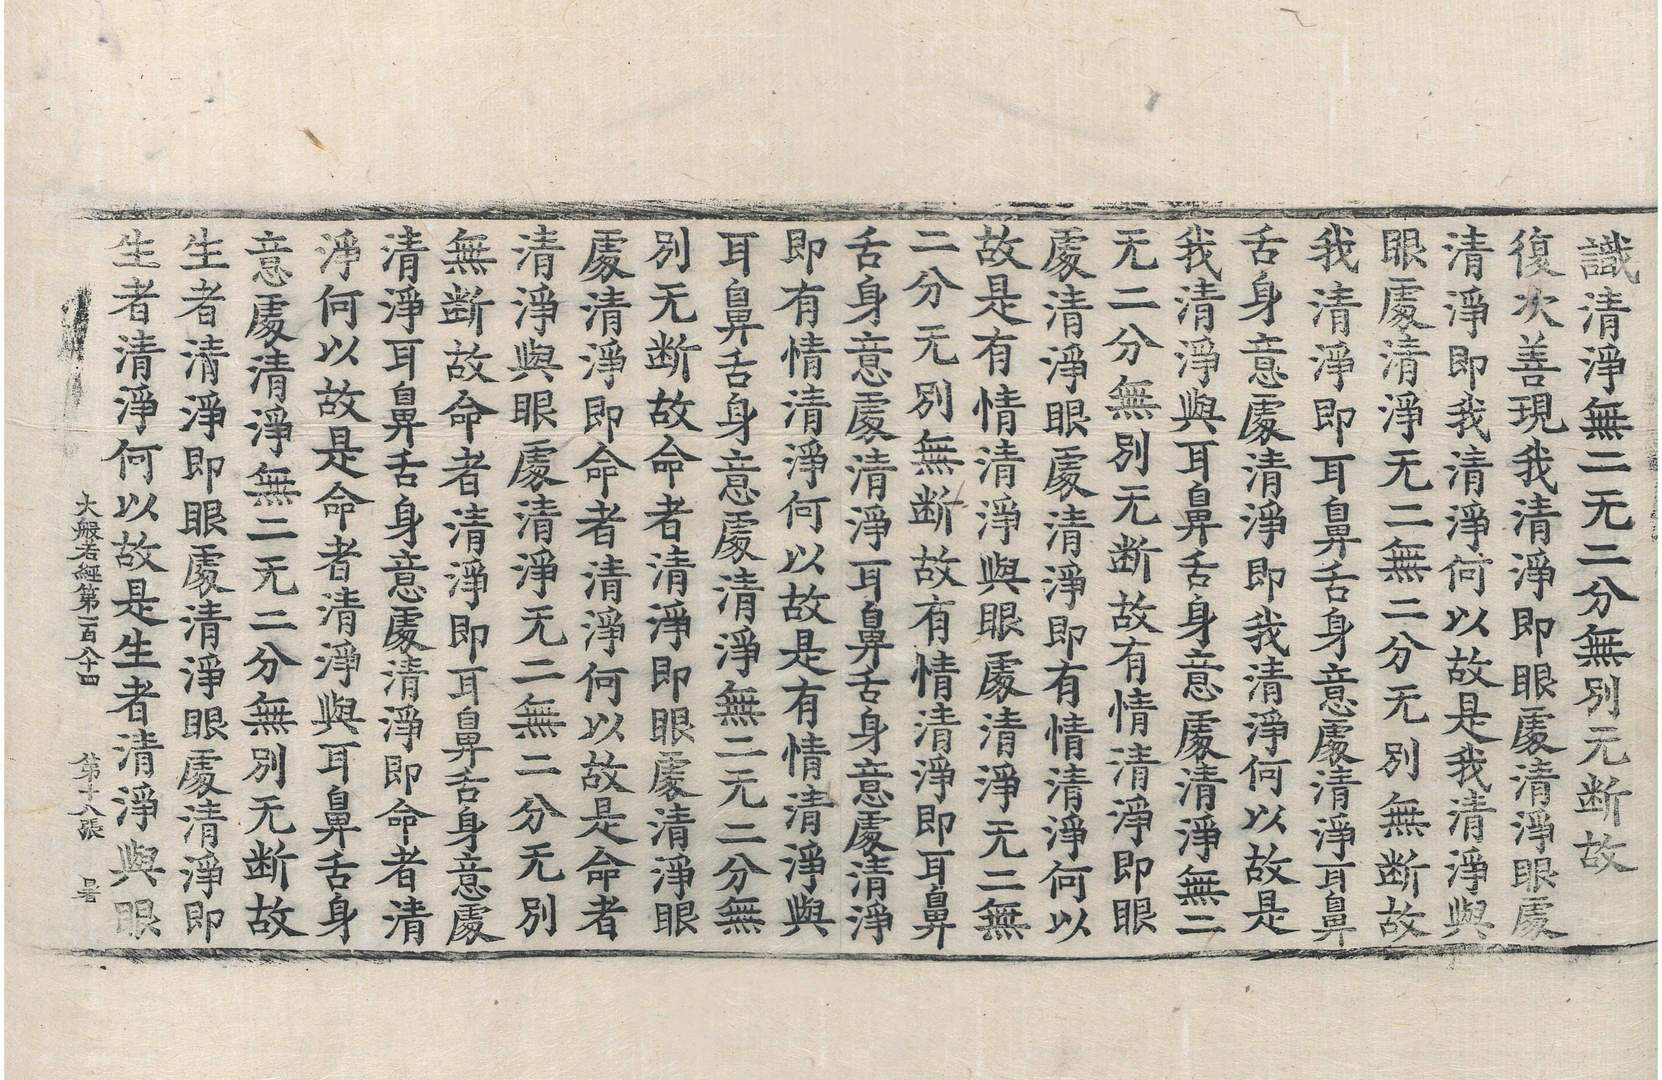 識清淨無二无二分無別无断故
復次善現我清淨即眼處清淨眼處
清淨即我清淨何以故是我清淨與
眼處清淨无二無二分无別無断故
我清淨即耳鼻舌身意處清淨耳鼻
舌身意處清淨即我清淨何以故是
我清淨與耳鼻舌身意處清淨無二
无二分無別无断故有情清淨即眼
處清淨眼處清淨即有情清淨何以
故是有情清淨與眼處清淨无二無
二分无別無断故有情清淨即耳鼻
舌身意處清淨耳鼻舌身意處清淨
即有情清淨何以故是有情清淨與
耳鼻舌身意處清淨無二无二分無
別无断故命者清淨即眼處清淨眼
處清淨即命者清淨何以故是命者
清淨與眼處清淨无二無二分无別
無断故命者清淨即耳鼻舌身意處
清淨耳鼻舌身意處清淨即命者清
淨何以故是命者清淨與耳鼻舌身
意處清淨無二无二分無別无断故
生者清淨即眼處清淨眼處清淨即
生者清淨何以故是生者清淨與眼
大般若經第一百八十四 第十八張 暑